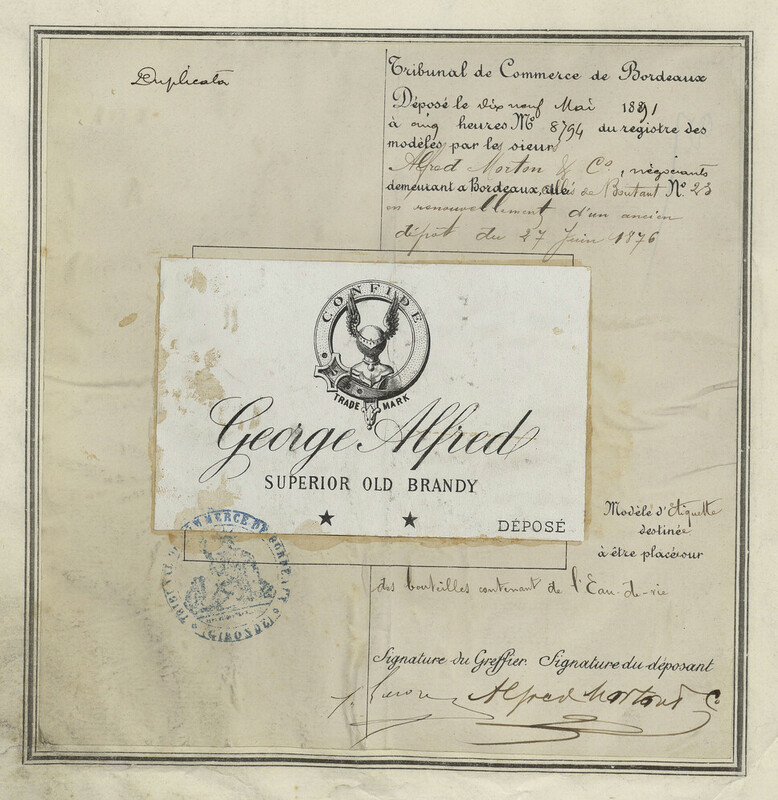 Duplicata
Tribunal de Commerce de Bordeaux
Déposé le dix neuf Mai 1891
à cinq heures Nº 8794 du registre des
modèles par le sieur
Alfred Morton & Cº, négociants
demeurant a Bordeaux, de Boutaut Nº 23
en renouvellement d'un ancien
dépôt du 27 Juin 1876
CONFIDE
TRADE MARK
George Alfred
SUPERIOR OLD BRANDY
★ ★
DÉPOSÉ
Modèle d'Etiquette
destinée
à être placée sur
des bouteilles contenant de l'Eau-de-vie
TRIBUNAL DE COMMERCE DE BORDEAUX
(GIRONDE)
Signature du Greffier. Signature du déposant
Alfred Morton & Co